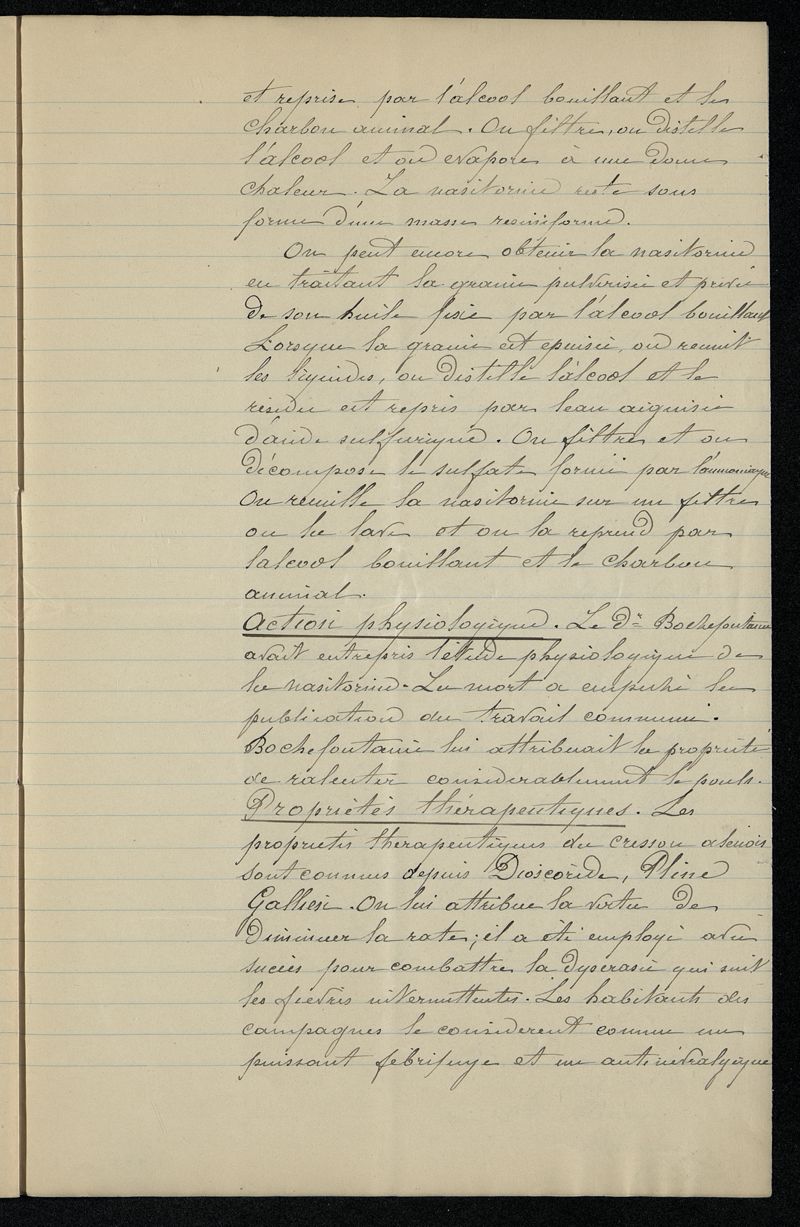 et reprise par l'álcool bouillant et le
charbon animal. On filtre, on distille
l'álcool et on evapore à une douce
chaleur. La nasitorine reste sous
forme d'une masse resiniforme.
On peut encore obtenir la nasitorine
en traitant la graine pulverisée et privée
de son huile fixe par l'álcool bouillant
Lorsque la graine est epuisée, on reunit
les liquides, on distille l'álcool et le
residu est repris par leau aiguisée
d'acide sulfurique. On filtre et on
décompose le sulfate formé par l'ammoniaque
On recueille la nasitorine sur un filtre
on la lave et on la reprend par
lalcool bouillant et le charbon
animal.
Action physiologique. Le Dr Bochefontaine
avait entrepris l'étude physiologique de
la nasitorine. La mort a empeché la
publication du travail commencé.
Bochefontaine lui attribuait la propriété
de ralentir considerablement le pouls.
Propriétés thérapeutiques. Les
proprietés therapeutiques du cresson alenois
sont connues depuis Dioscoride, Pline
Gallien. On lui attribue la vertu de
diminuer la rate; il a été employé avec
succès pour combattre la dyscrasie qui suit
les fievres intermittentes. Les habitants des
campagnes le considerent comme un
puissant fébrifuge et un antinévralgique